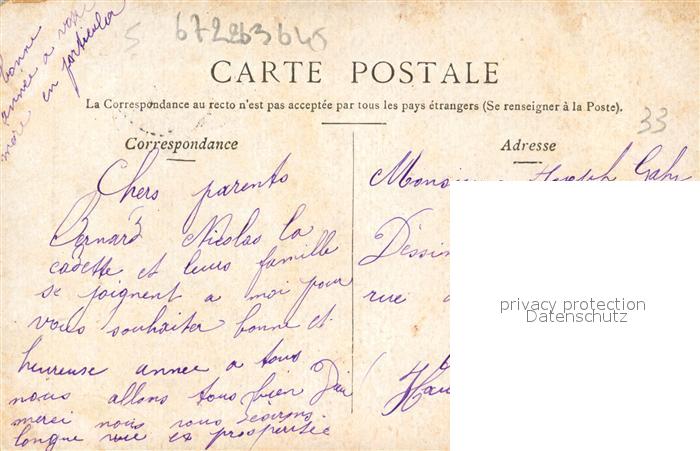 bonne
année a votre
mère en particulier
5 672263645
CARTE POSTALE
La Correspondance au recto n'est pas acceptée par tous les pays étrangers (Se renseigner à la Poste).
33
Correspondance
Chers parents
Bernard Nicolas la
cadette et leurs famille
se joignent a moi pour
vous souhaiter bonne et
heureuse annee a tous
nous allons tous bien Dieu
merci nous vous désirons
longue vie et prosperitée
Adresse
Joseph Gahr
Dessin
rue
privacy protection
Datenschutz